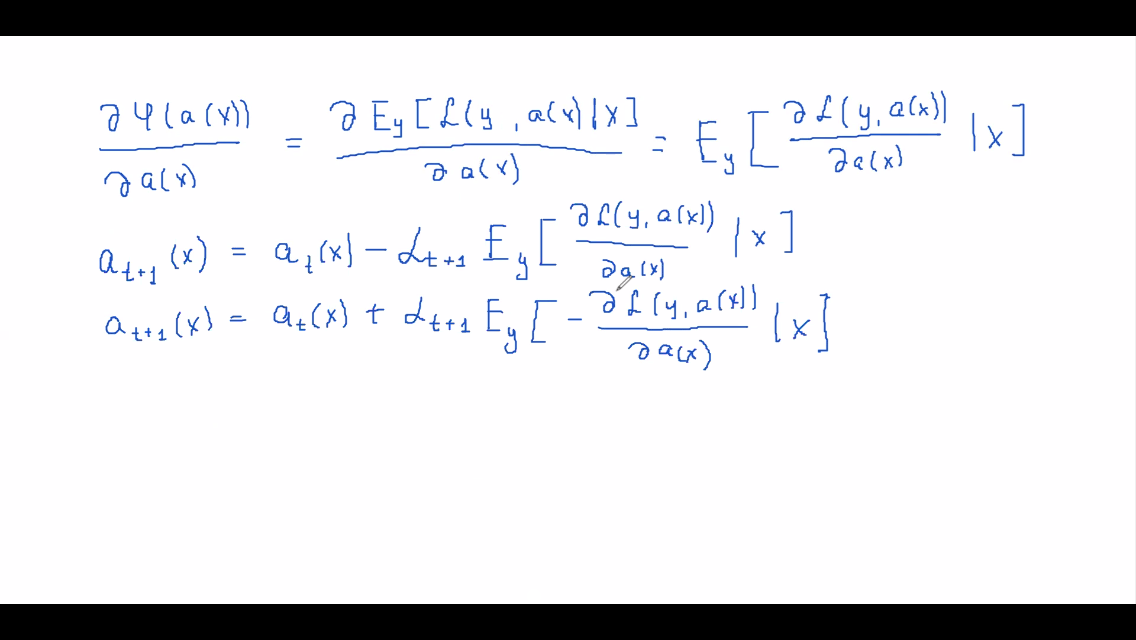 ∂Ψ(a(x))/∂a(x) = ∂E_y[ℒ(y, a(x)|x]/∂a(x) = E_y[∂ℒ(y, a(x))/∂a(x) |x]
a_{t+1}(x) = a_t(x) - α_{t+1} E_y[∂ℒ(y, a(x))/∂a(x) |x]
a_{t+1}(x) = a_t(x) + α_{t+1} E_y[-∂ℒ(y, a(x))/∂a(x) |x]